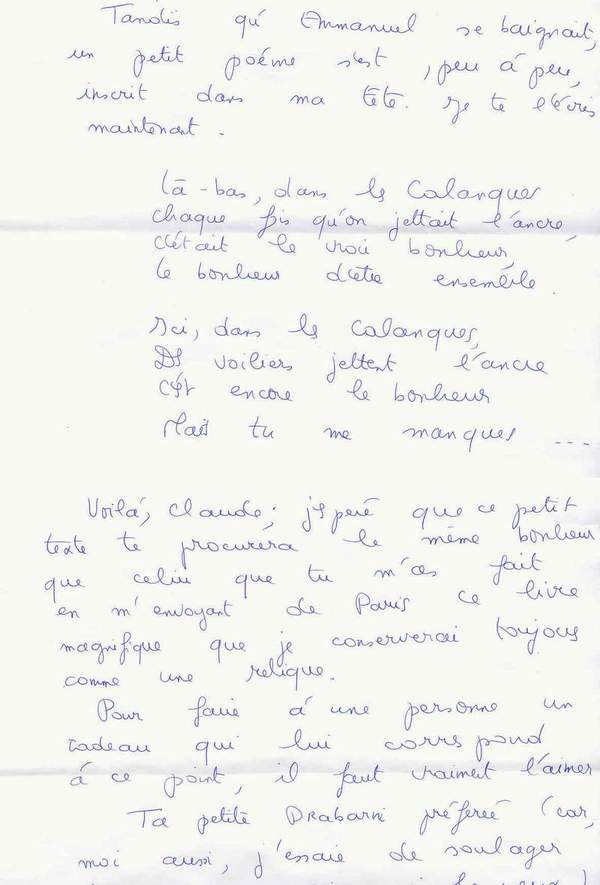 Tandis qu' Emmanuel se baignait,
un petit poéme s'est , peu á peu,
inscrit dans ma tête. Je te l'écris
maintenant.
Là-bas, dans les Calanques
chaque fois qu'on jettait l'ancre,
C'était le vrai bonheur,
le bonheur d'être ensemble.
Ici, dans les Calanques,
Des voiliers jettent l'ancre
C'est encore le bonheur
Mais tu me manques ....
Voilà, Claude; j'espère que ce petit
texte te procurera le même bonheur
que celui que tu m'as fait
en m'envoyant de Paris ce livre
magnifique que je conserverai toujours
comme une relique.
Pour faire á une personne un
cadeau qui lui correspond
á ce point, il faut vraiment l'aimer
Ta petite DRABARNI préférée (car,
moi aussi, j'essaie de soulager